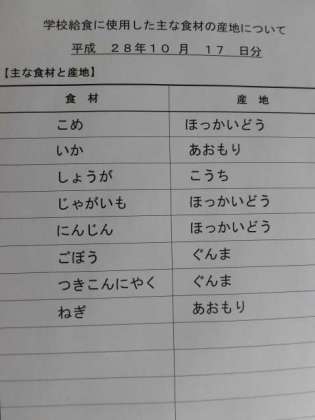 学校給食に使用した主な食材の産地について
平成 28年10月 17 日分
【主な食材と産地】
食材 産地
こめ ほっかいどう
いか あおもり
しょうが こうち
じゃがいも ほっかいどう
にんじん ほっかいどう
ごぼう ぐんま
つきこんにやく ぐんま
ねぎ あおもり